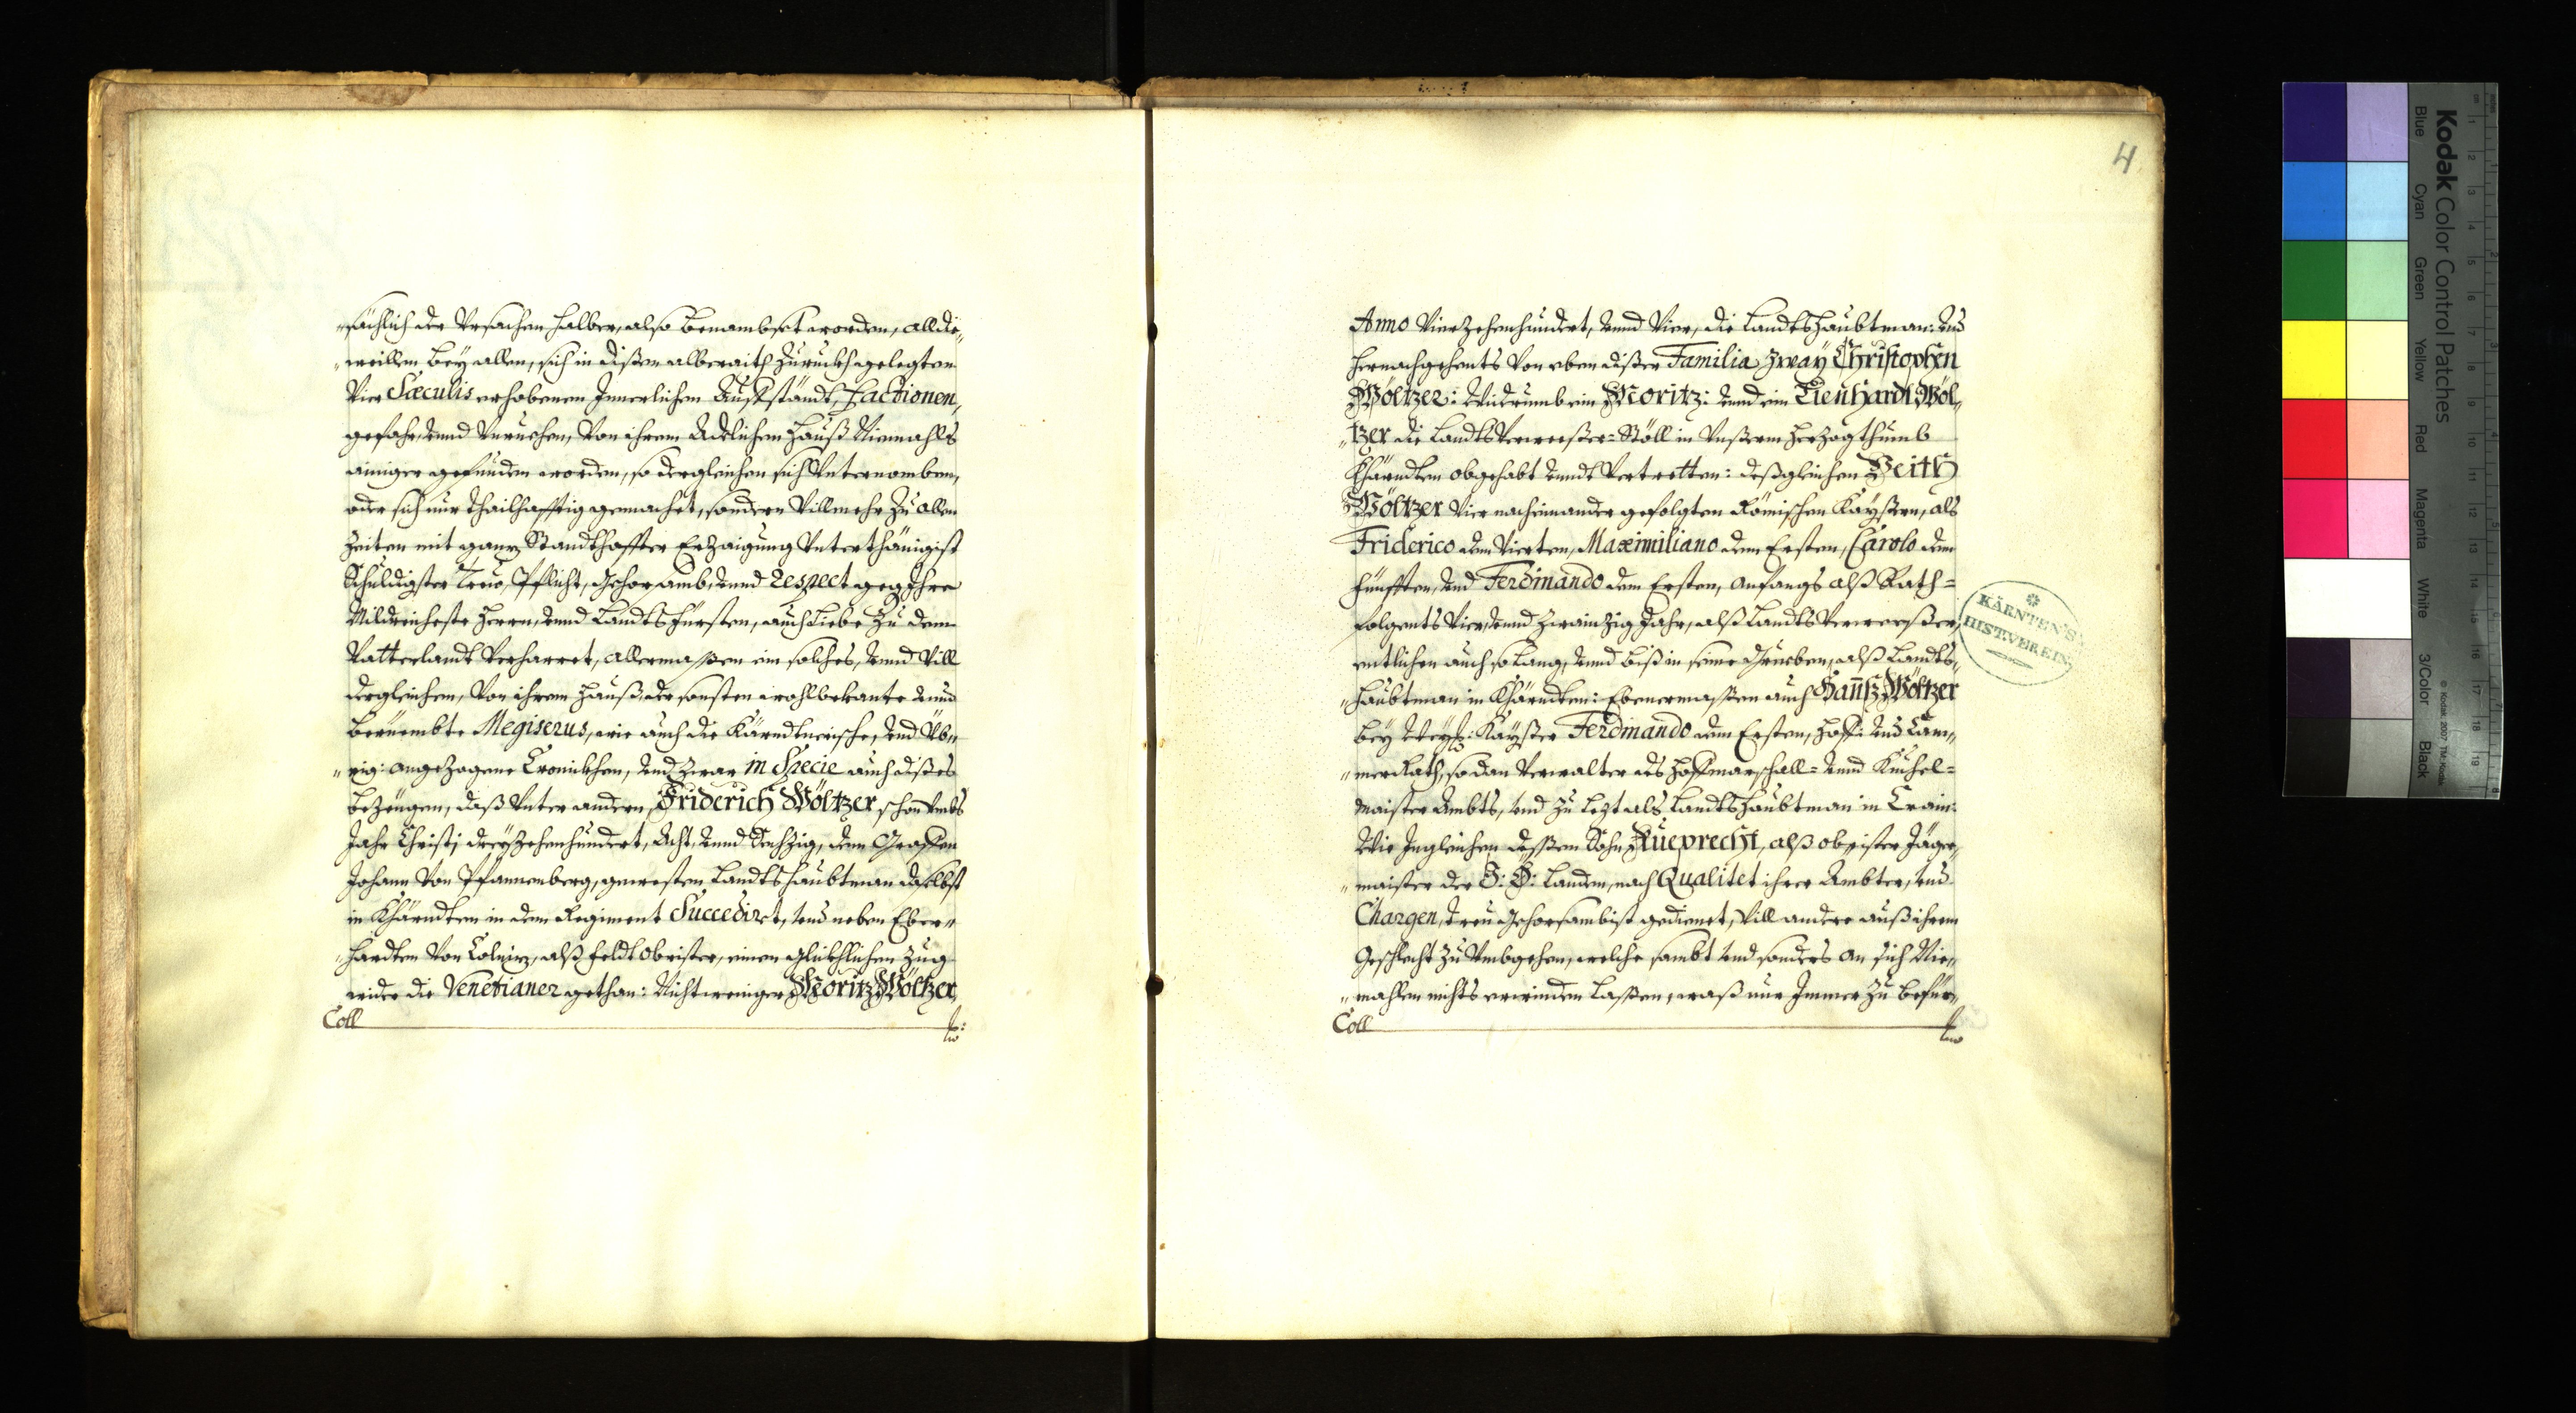 „sächlich der Vrsachen halber, also benambset worden, alldie„
„weillen bey allen, sich in dißen alberaith zuruckh gelegten
Vier Sæculis erhobenen Innerlichen Auffständt, Factionen,
gefahr, vnnd Vnruehen, von ihrem Adelichen Hauß Niemahls
ainiger gefunden worden, so dergleichen sich Vnternomben,
oder sich nur theilhafftig gemachet, sondern Villmehr zu allen
Zeiten mit ganz Standthaffter Erzaigung Vnterthänigist
Schuldigster Treue, Pflicht, Gehorsamb, vnnd Respect geg Ihre
Mildreicheste Herrn, vnnd Landts Fürsten, auch Liebe zu dem
Vatterlandt Verharret, allermaßen ein solches, vnnd Vill
dergleichen, von ihrem Hauß, der sonsten wohlbekante vnnd
berüembte Megiserus, wie auch die Kärndtnerische, vnd Üb„
„rig: angezogene Cronickhen, vnd zwar in Specie auch dises
bezeugen, daß Vnter andern, Friderich Wöltzer schon Vmbs
Jahr Christi dreyzehenhundert, Acht, vnnd Sechzig, dem Graffen
Johann von Pfannenberg, gewesten Landtshaubtman daselbst
in Khärndten in dem Regiment Succedirt, vnd neben Eber„
„hardten von Colnitz, alß Feldt Obrister, einen glückhlichen Zug
wider die Venetianer gethan: Nicht weniger Moritz Wöltzer
Coll
4
Anno Vierzehenhundert, vnnd Vier, die Landtshaubtman: vnd
hernachgehents von eben diser Familia zway Christophen
Wöltzer: Widrumb ein Moritz: vnnd ein Lienhardt Wöl„
„tzer die Landts Verweeßer-Stöll in Vnßerm Herzogthumb
Khärndten obgehabt vnndt Vertretten: deßgleichen Veith
Wöltzer Vier nacheinander gefolgten Römischen Kaysern, als
Friderico dem Vierten, Maximiliano dem Ersten, Carolo dem
fünfften, vnd Ferdinando dem Ersten, Anfangs alß Rath=
folgents Vier, vnnd zwainzig Jahr, alß Landts Verweeßer,
entlichen auch so lang, vnnd biß in seine Grueben, alß Landts„
„haubtman in Khärndten: Ebenermassen auch Hannß Wöltzer
bey Kayser Ferdinando dem Ersten, Hoff: vnd Cam„
„mer Rath, so dan Verwalter des Hoffmarschall= vnnd Kuchel=
maister Ambts, vnd zu lezt als Landtshaubtman in Crain:
Wie Ingleichen deßen Sohn Rueprecht, alß obrister Jäger„
„maister der I: Ö: Landen, nach Qualitet ihrer Ambter, vnd
Chargen, treu Gehorsambist gedienet, Vill andere auß ihrem
Geschlecht zu Vmbgehen, welche sambt vnd sonders an sich Nie„
„mahlen nichts erwinden laßen, waß nur Immer zu befür„
Coll
KÄRNTEN'S
HIST. VEREIN
Kodak Color Control Patches
Blue Cyan Green Yellow Red Magenta White 3/Color Black
© Kodak, 2007 TM: Kodak